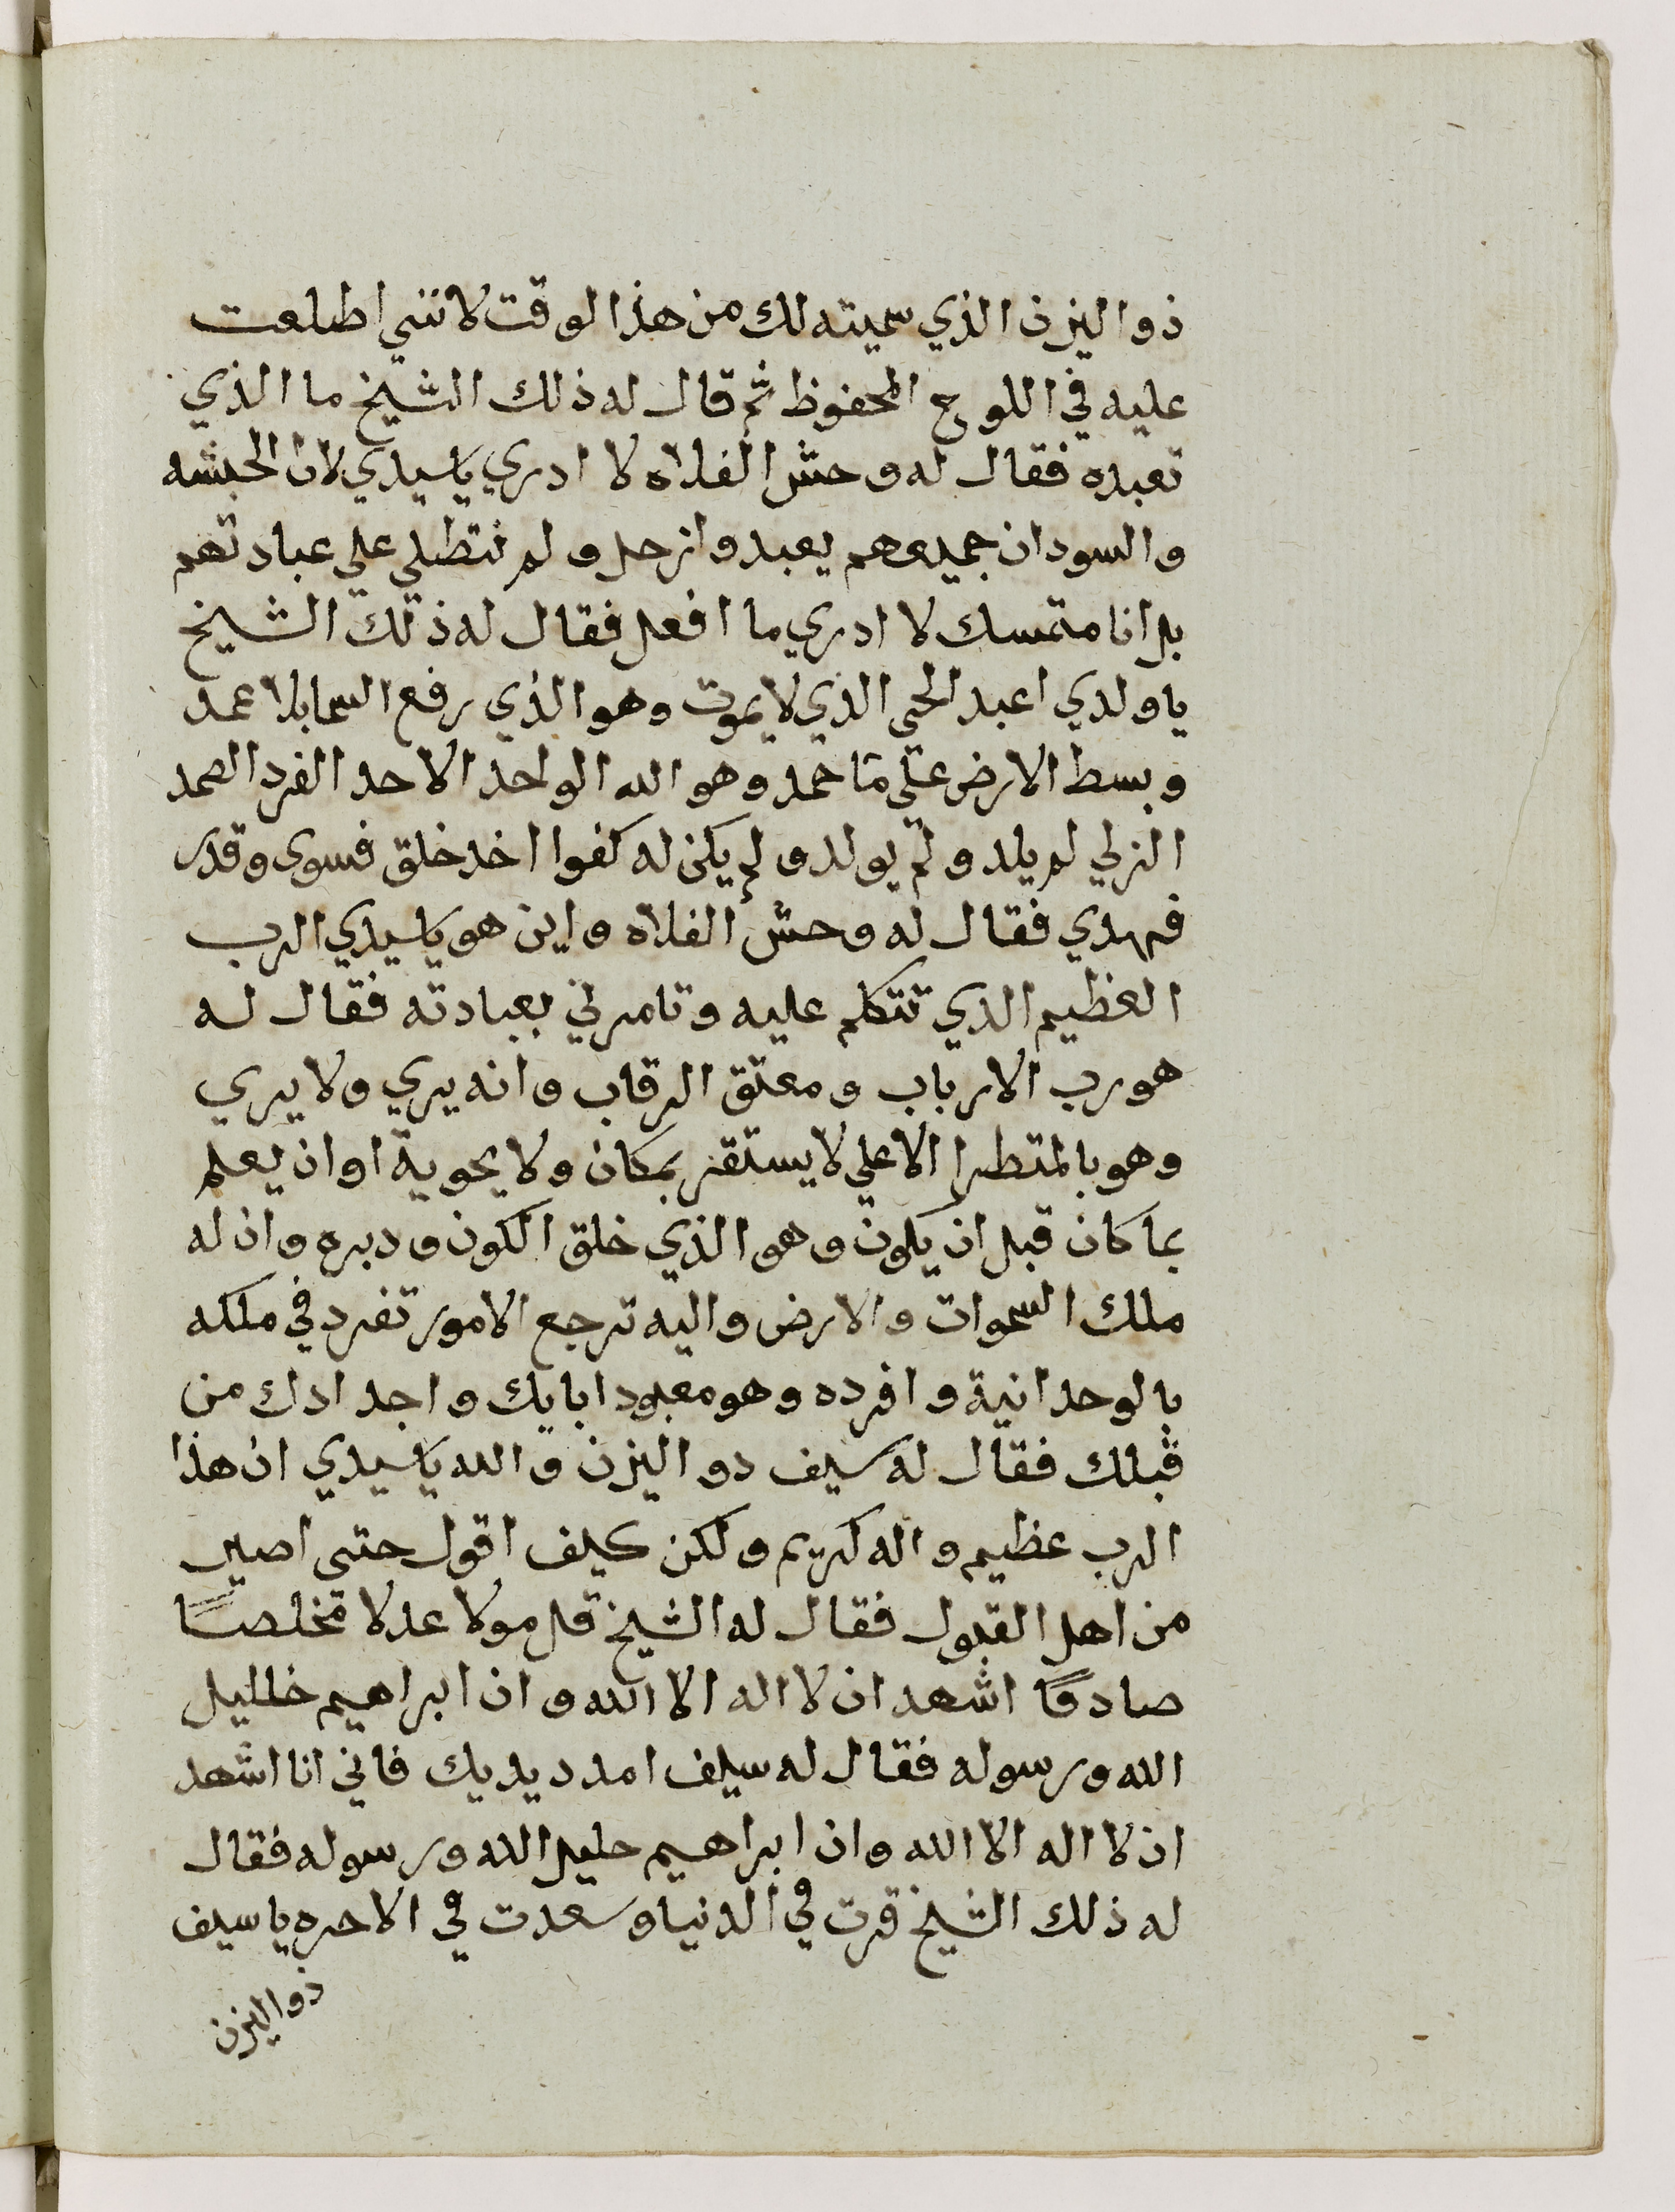 ذو اليزن الذي سميته لك من هذا الوقت لانني اطلعت
عليه في اللوح المحفوظ ثم قال له ذلك الشيخ ما الذي
تعبده فقال له وحش الفلاه لا ادري يا سيدي لان الحبشه
والسودان جميعهم يعبدوا زحل ولم تنطلي علي عبادتهم
بل انا متمسك لا ادري ما افعل فقال له ذلك الشيخ
يا ولدي اعبد الحي الذي لا يموت وهو الذي رفع السما بلا عمد
وبسط الارض علي ما جمد وهو الله الواحد الاحد الفرد الصمد
الزلي لم يلد ولم يولد ولم يكن له كفوا احد خلق فسوى وقدر
فهدي فقال له وحش الفلاه واين هو يا سيدي الرب
العظيم الذي تتكلم عليه وتامرني بعبادته فقال له
هو رب الارباب ومعتق الرقاب وانه يري ولا يري
وهو بالمنظر الاعلي لا يستقر بمكان ولا يحوية اوان يعلم
بما كان قبل ان يكون وهو الذي خلق الكون ودبره وان له
ملك السموات والارض واليه ترجع الامور تفرد في ملكه
بالوحدانية وافرده وهو معبود ابايك واجدادك من
قبلك فقال له سيف دو اليزن والله يا سيدي ان هذا
الرب عظيم واله كريم ولكن كيف اقول حتى اصير
من اهل القبول فقال له الشيخ قل مولا عدلا مخلصًا
صادقًا اشهد ان لا اله الا الله وان ابراهيم خليل
الله ورسوله فقال له سيف امدد يديك فاني انا اشهد
ان لا اله الا الله وان ابراهيم حليل الله ورسوله فقال
له ذلك الشيخ قرت في الدنيا وسعدت في الاحره يا سيف
ذو اليزن